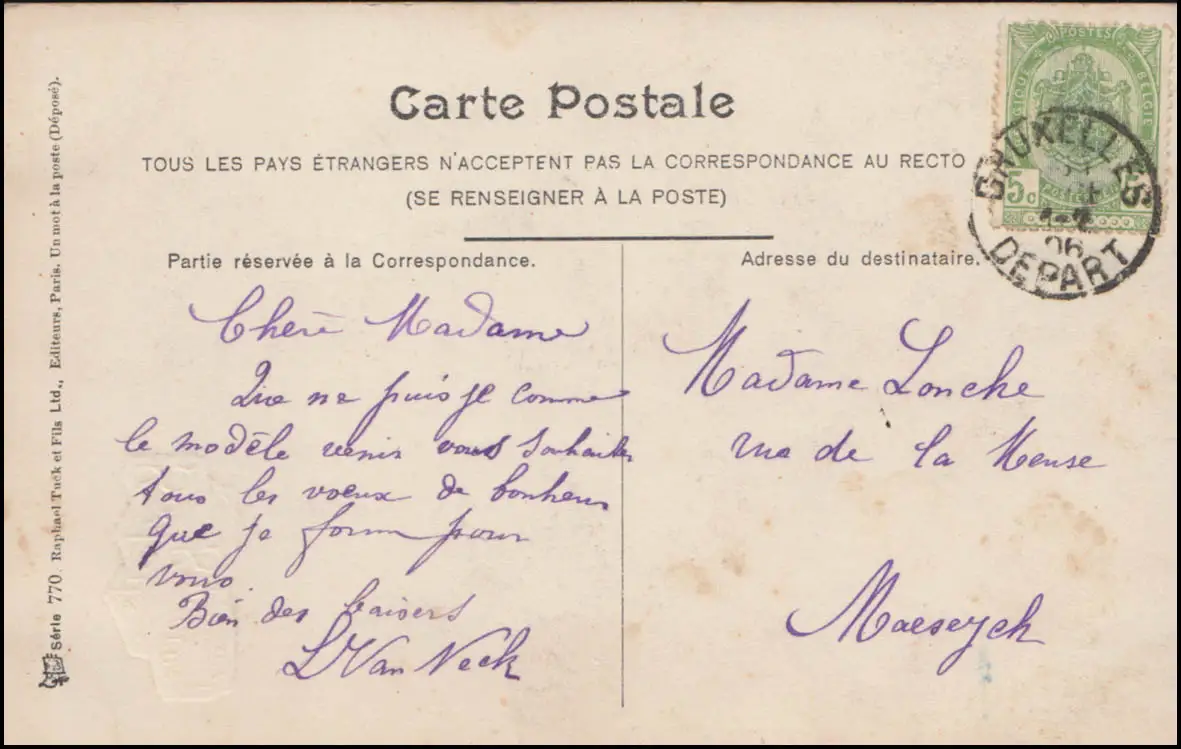 Carte Postale
TOUS LES PAYS ÉTRANGERS N'ACCEPTENT PAS LA CORRESPONDANCE AU RECTO
(SE RENSEIGNER À LA POSTE)
Partie réservée à la Correspondance.
Chère Madame
Que ne puis je comme
le modèle venir vous souhaiter
tous les voeux de bonheur
que je forme pour
vous.
Bien des baisers
L Van Neck
Adresse du destinataire.
Madame Lonche
rue de la Meuse
Maeseyck
POSTES
BELGIQUE BELGIE
5c
POSTERIJEN
BRUXELLES
1-2
06
DEPART
Série 770. Raphael Tuck et Fils Ltd., Editeurs, Paris. Un mot à la poste (Déposé).